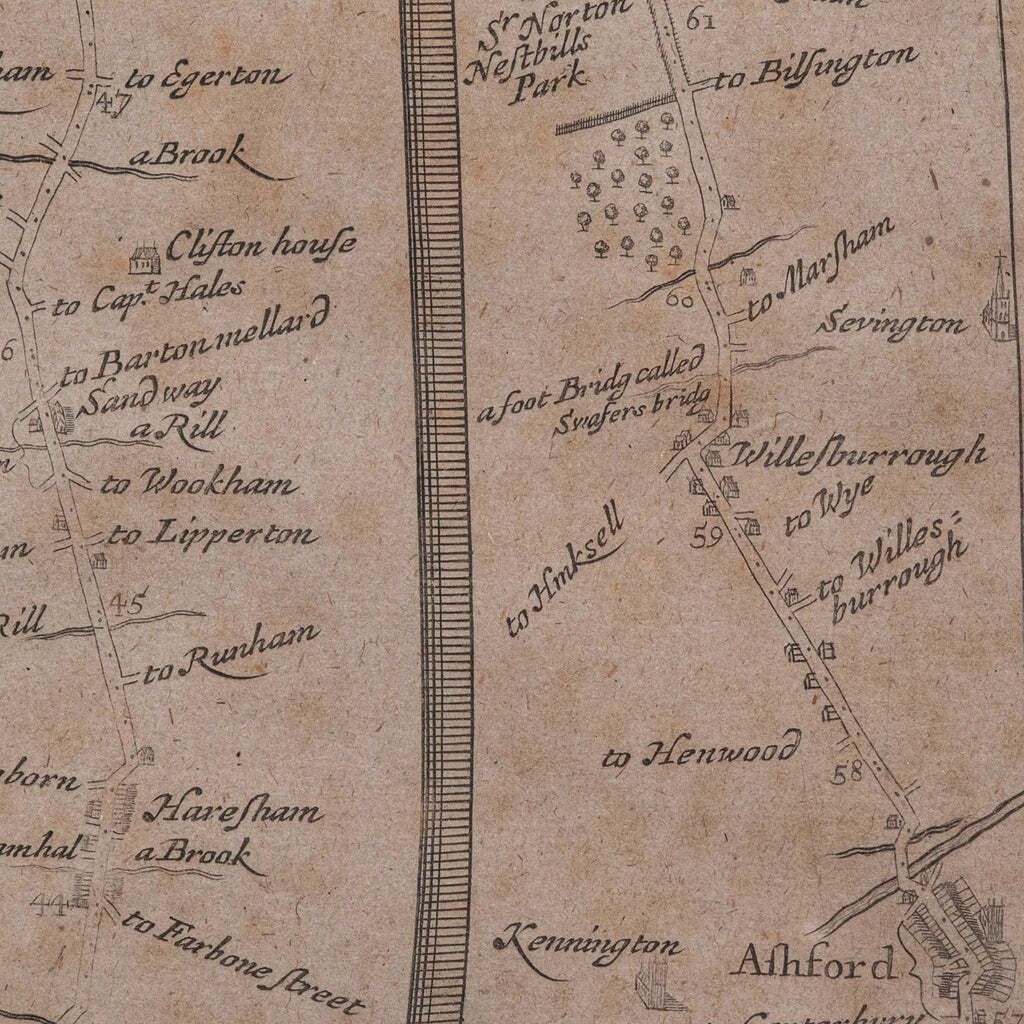 to Egerton
47
a Brook
Cliſton houſe
to Cap.t Hales
6
to Barton mellard
Sandway
a Rill
to Wookham
to Lipperton
45
Rill
to Runham
Hareſham
a Brook
44
to Farbone ſtreet
Sr. Norton
Neſtbills
Park
61
to Bilſington
60
to Marſham
Sevington
a foot Bridg called
Swafers bridg
Willeſburrough
to Wye
59
to Hinksell
to Willes=
burrough
to Henwood
58
Kennington
Aſhford
Canterbury
57